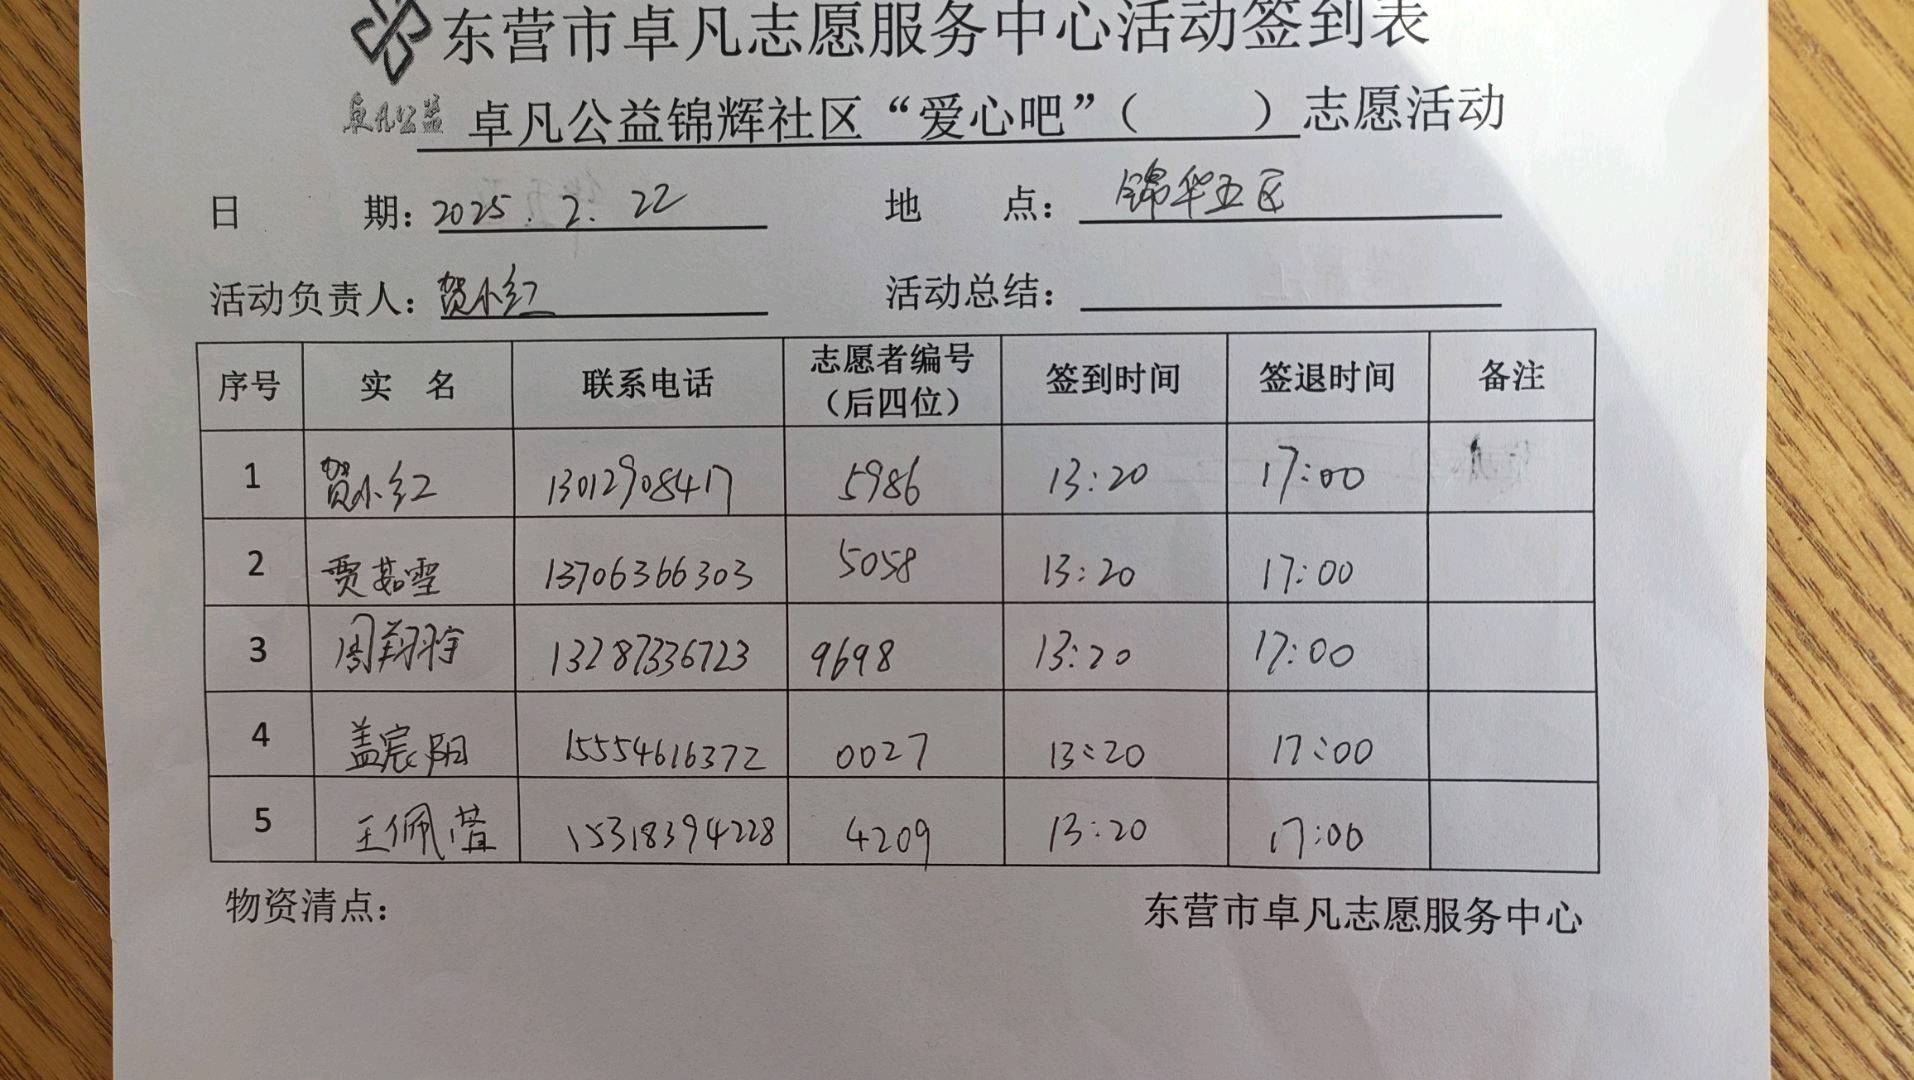 东营市卓凡志愿服务中心活动签到表
卓凡公益 卓凡公益锦辉社区“爱心吧”（ ）志愿活动
日 期：2025.2.22 地 点：锦华五区
活动负责人：贺小红 活动总结：
序号 实 名 联系电话 志愿者编号（后四位） 签到时间 签退时间 备注
1 贺小红 13012908417 5986 13:20 17:00
2 贾茹雪 13706366303 5058 13:20 17:00
3 周翔宇 13287336723 9698 13:20 17:00
4 盖宸阳 15554616372 0027 13:20 17:00
5 王佩萱 15318394228 4209 13:20 17:00
物资清点： 东营市卓凡志愿服务中心